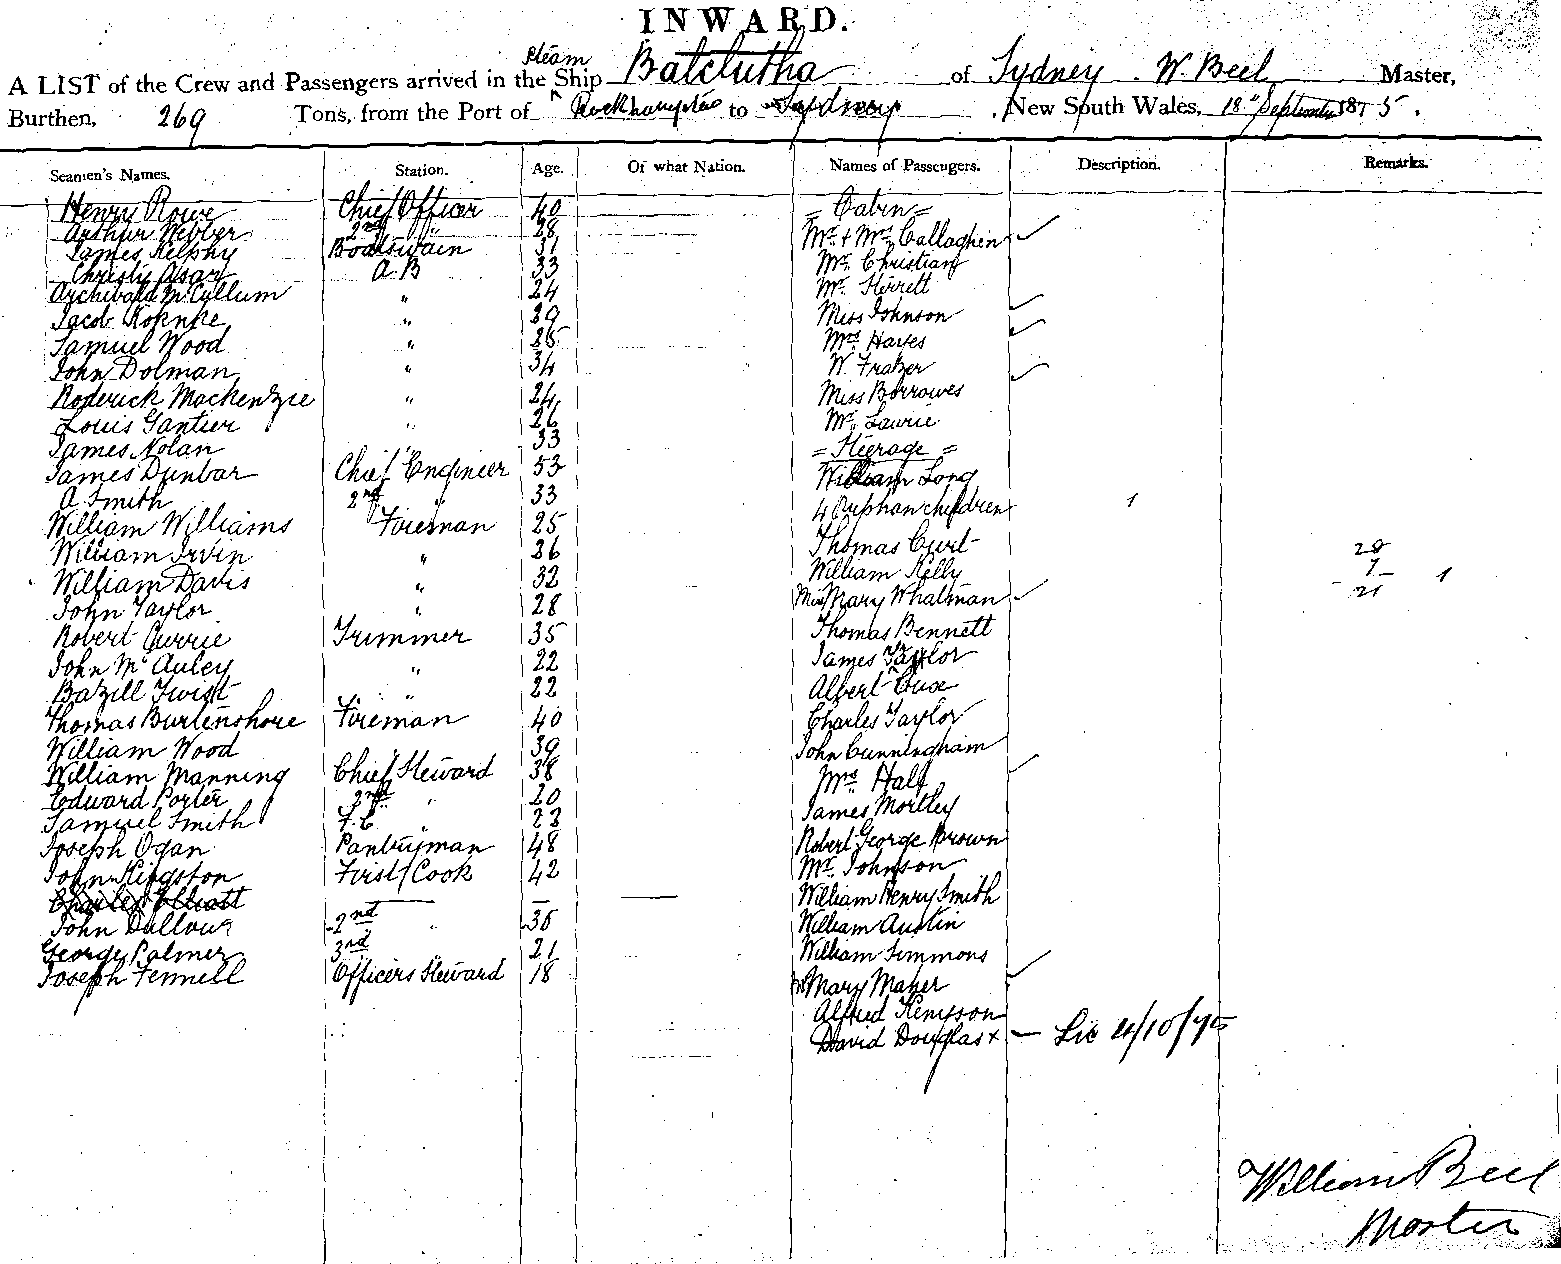 INWARD.
A LIST of the Crew and Passengers arrived in the Steam Ship Balclutha of Sydney W. Beel Master,
Burthen, 269 Tons, from the Port of Rockhampton to Sydney, New South Wales, 18" September 1875.
Seamen's Names. Station. Age. Of what Nation. Names of Passengers. Description. Remarks.
Henry Rowe Chief Officer 40 = Cabin =
Arthur Webber 2nd " 28 Mr. & Mrs. Callaghan
James Kelphy Boatswain 31 Mr. Christian
Christy A B 33 Mr. Sterrett
Archibald McCullum " 24 Miss Johnson
Jacob " 29 Mrs Harses
Samuel Wood " 25 W. Frazer
John Dolman " 34 Miss Borrowes
Roderick Mackenzie " 24 Mr. Laurie
Louis Gantier " 26 = Steerage =
James Nolan " 33 William Long
James Dunbar Chief Engineer 53 4 Orphan children
A Smith 2nd " 33 Thomas
William Williams Fireman 25 William Kelly
William Irvin " 26 Miss Mary Whatman
William Davis " 32 Thomas Bennett
John Taylor " 28 James Taylor
Robert Currie Trimmer 35 Albert
John McAuley " 22 Charles Taylor
Bazill Twist " 22 John Cunningham
Thomas Burtenshore Fireman 40 Mrs. Hall
William Wood 39 James Mortley
William Manning Chief Steward 38 Robert George Brown
Edward Porter 2nd " 20 Mr. Johnson
Samuel Smith F.C. " 23 William Henry Smith
Joseph Ogan Pantryman 48 William Austin
John Kingston First Cook 42 William Simmons
Charles Elliott — — Mary Maher
John Dullour 2nd " 35 Alfred Kenisson
George Palmer 3rd 21 David Douglas x — Lic 4/10/75
Joseph Fennell Officers Steward 18
28
7
21
William Beel
Master